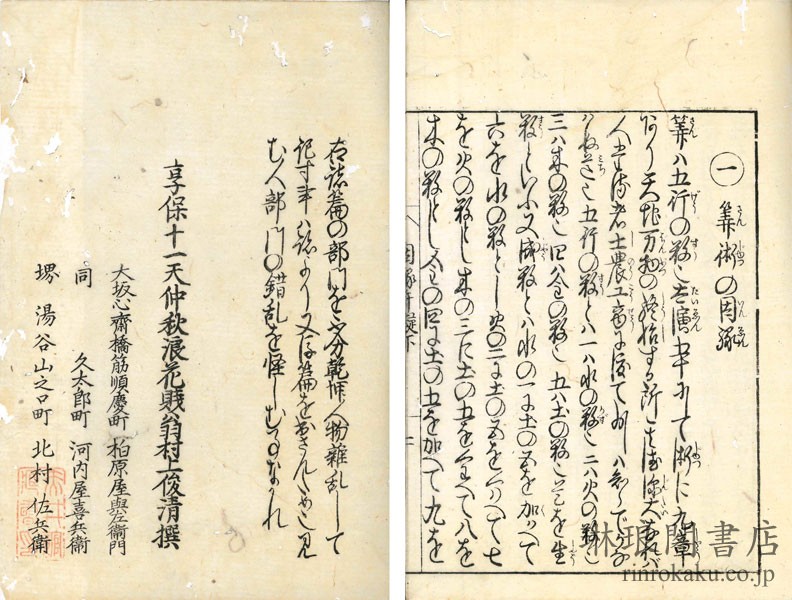 一 筭術の因縁
筭ハ五行の数也 書にて術に九章
あり天地万物の終始する所
士農工商に渡て
五行の数とハ一ハ水の数也二ハ火の数也
三ハ木の数也四ハ金の数也五ハ土の数也是を生
数といふ又成数とハ水の一に土の五を加へて
六を水の数とし火の二に土の五を加へて七
を火の数とし木の三に土の五を加へて八を
木の数とし金の四に土の五を加へて九を
右諸篇の部門を不分乾坤人物雑乱して
記す事ハ 後篇を出さんため也見
む人部門の錯乱を怪しむ事なかれ
享保十一天仲秋浪花賎翁村上俊清撰
大坂心齋橋筋順慶町 柏原屋與左衛門
同 久太郎町 河内屋喜兵衛
堺 湯谷山之口町 北村佐兵衛
琳琅閣書店
rinrokaku.co.jp